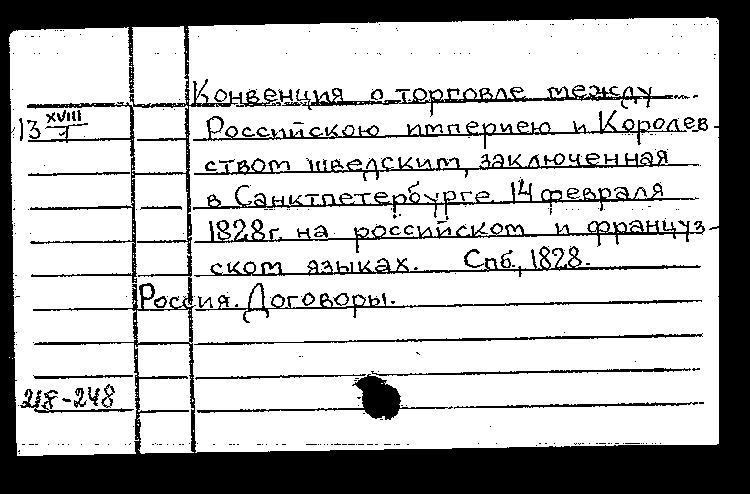 Конвенция о торговле между
13 XVIII/1 Российскою империею и Королев-
ством шведским, заключенная
в Санктпетербурге 14 февраля
1828г. на российском и француз-
ском языках. Спб, 1828.
Россия. Договоры.
218-248